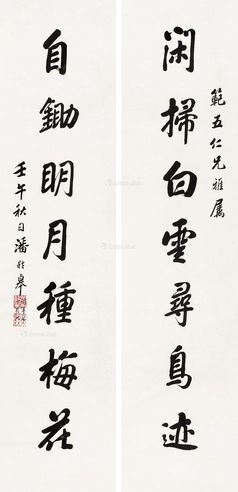 範五仁兄雅屬
閑掃白雲尋鳥迹
自鋤明月種梅花
壬午秋日潘龄皋